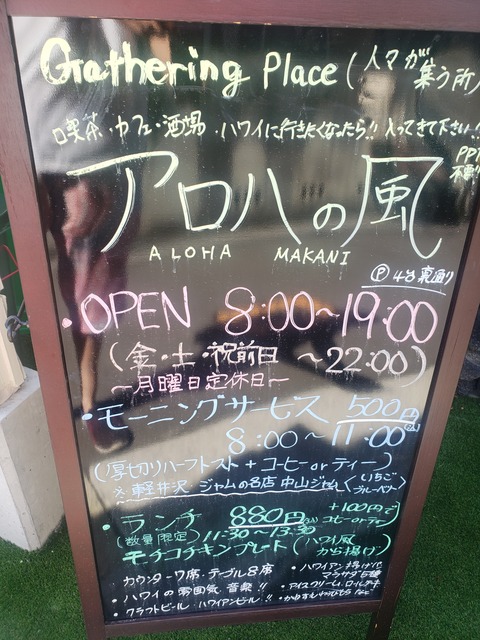 Gathering Place (人々が集う所)
喫茶・カフェ・酒場・ハワイに行きたくなったら!! 入ってきて下さい!!
アロハの風
ALOHA MAKANI
Ⓟ4台裏通り
・OPEN 8:00~19:00
(金・土・祝前日 ~22:00)
~月曜日定休日~
・モーニングサービス 500円
8:00~11:00
(厚切りハーフトースト + コーヒー or ティー)
※ 軽井沢・ジャムの名店 中山ジャム〈いちご ブルーベリー〉
・ランチ 880円 +100円で コーヒー or ティー
(数量限定) 11:30~13:30
モチコチキンプレート (ハワイ風 から揚げ)
カウンター7席・テーブル8席
・ハワイの雰囲気 音楽!!
・クラフトビール・ハワイアンビール!!
・ハワイアン揚げパン
マラサダ5種
・アイスクリーム